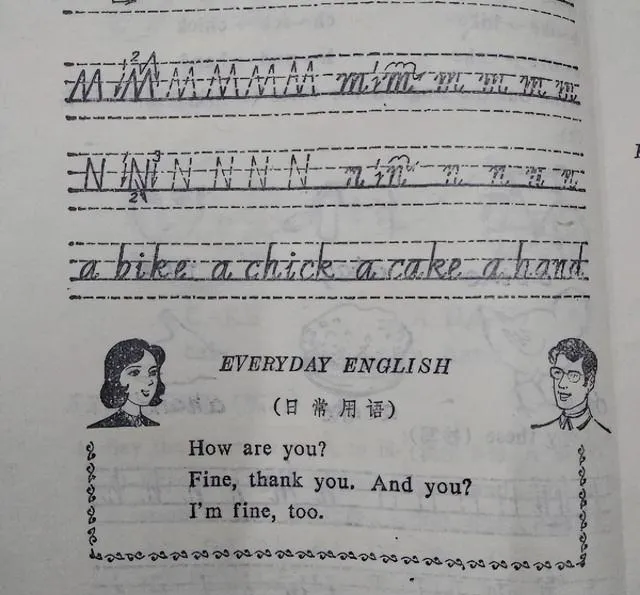 M M M M M M M m m m m m m
N N N N N N n n n n n
a bike a chick a cake a hand
EVERYDAY ENGLISH
(日常用语)
How are you?
Fine, thank you. And you?
I'm fine, too.